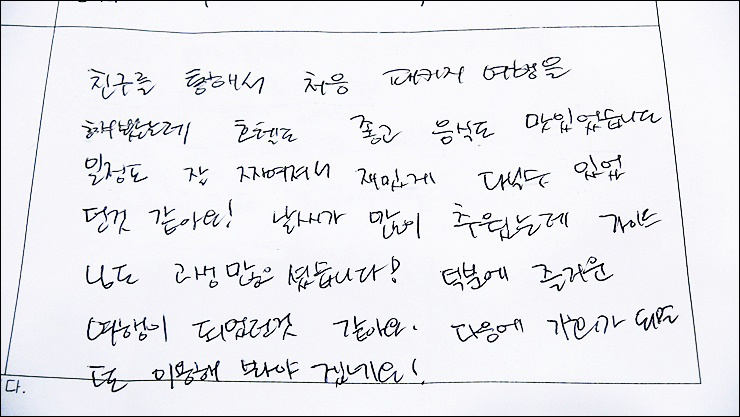 친구를 통해서 처음 패키지 여행을
해봤는데 호텔도 좋고 음식도 맛있었습니다
일정도 잘 짜여져서 재밌게 다닐수 있었
던것 같아요! 날씨가 많이 추웠는데 가이드
님도 고생 많으셨습니다! 덕분에 즐거운
여행이 되었던것 같아요. 다음에 기회가 되면
또 이용해 봐야 겠네요!
다.